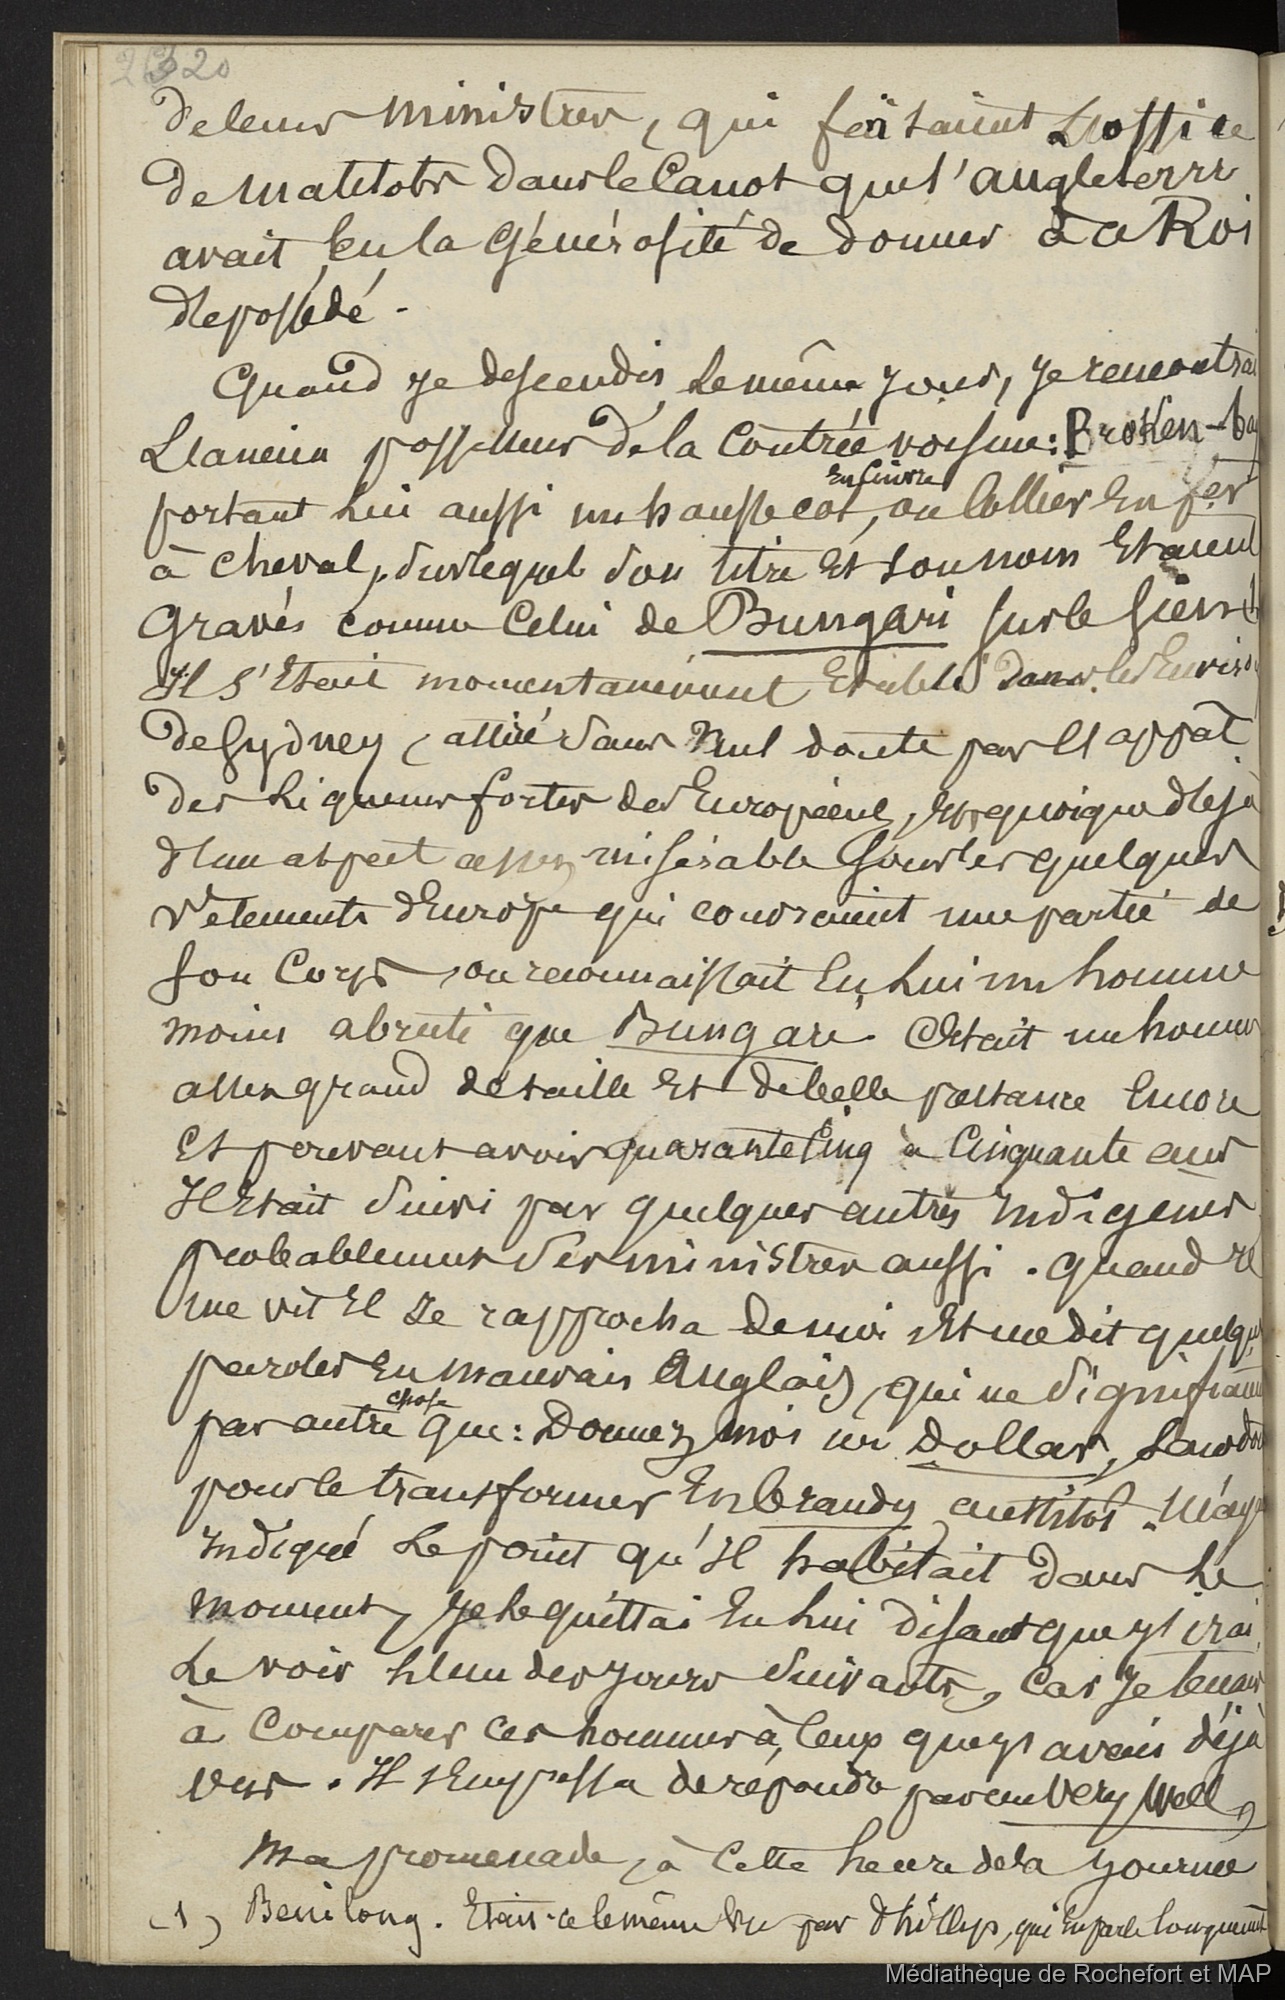 2320
de leurs ministres, qui faisaient L'office
de matelots dans le Canot que l'angleterre
avait Eu la Générosité de donner à ce Roi
dépossédé.
Quand je descendis le même jour, je rencontrai
L'ancien possesseur de la Contrée voisine: Broken-bay
portant Lui aussi un hausse col, En Cuivre ou Collier En fer
à cheval, sur lequel son titre Et son nom Etaient
Gravés comme Celui de Bungari sur le sien (1)
Il s'Etait momentanément Etabli dans les Environs
de Sydney, attiré sans Nul doute par L'appât
des Liqueurs fortes des Européens, Et, quoique déjà
d'un aspect assez misérable sous les quelques
vêtements d'Europe qui couvraient une partie de
son Corps, on reconnaissait En Lui un homme
moins abruti que Bungari. C'Etait un homme
assez grand de taille Et de belle prestance Encore
Et pouvant avoir quarante Cinq à Cinquante ans
Il Etait suivi par quelques autres Indigènes
probablement ses ministres aussi. Quand il
me vit Il se rapprocha de moi Et me dit quelques
paroles En mauvais Anglais, qui ne signifiaient
pas autre chose que: Donnez moi un Dollar, sans doute
pour le transformer En brandy aussitôt. M'ayant
Indiqué Le point qu'Il habitait dans Le
moment, Je le quittai En Lui disant que j'irai
Le voir L'un des jours suivants, Car je tenais
à Comparer ces hommes à Ceux que j'avais déjà
vus. Il s'Empressa de répondre par un Very Well,
Ma promenade, à Cette heure de la journée
(1) Benilong. Etait-ce le même vu par Phillip, qui En parle longuement
Médiathèque de Rochefort et MAP